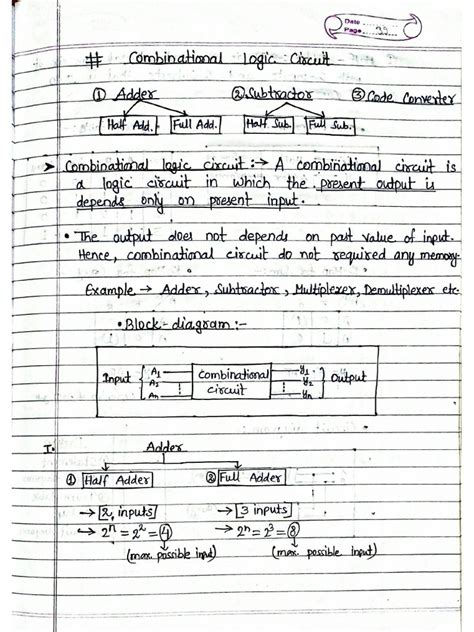 Date ........
Page ....39....
# Combinational Logic Circuit
① Adder ② Subtractor ③ Code Converter
Half Add. Full Add. Half Sub. Full Sub.
➤ Combinational logic circuit :→ A combinational circuit is
a logic circuit in which the present output is
depends only on present input.
• The output does not depends on past value of input.
Hence, combinational circuit do not required any memory.
Example → Adder, Subtractor, Multiplexer, Demultiplexer etc.
• Block-diagram :-
Input A₁ A₂ ⋮ Aₙ Combinational circuit Y₁ Y₂ ⋮ Yₙ Output
I. Adder
① Half Adder ② Full Adder
→ [2, inputs] → [3 inputs]
→ 2ⁿ = 2² = 4 → 2ⁿ = 2³ = 8
(max. possible input) (max. possible input)